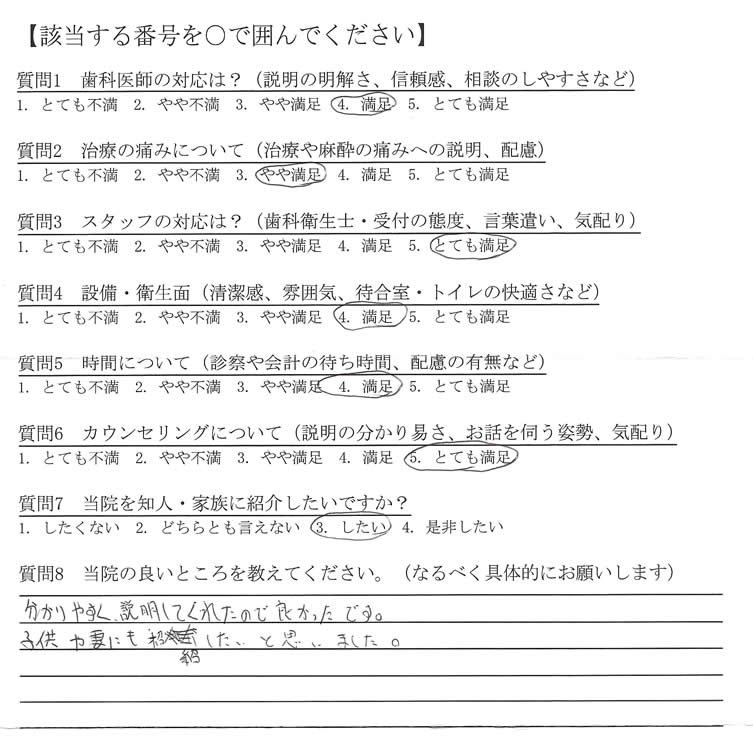 【該当する番号を〇で囲んでください】
質問1　歯科医師の対応は？（説明の明解さ、信頼感、相談のしやすさなど）
1. とても不満　2. やや不満　3. やや満足　4. 満足　5. とても満足
質問2　治療の痛みについて（治療や麻酔の痛みへの説明、配慮）
1. とても不満　2. やや不満　3. やや満足　4. 満足　5. とても満足
質問3　スタッフの対応は？（歯科衛生士・受付の態度、言葉遣い、気配り）
1. とても不満　2. やや不満　3. やや満足　4. 満足　5. とても満足
質問4　設備・衛生面（清潔感、雰囲気、待合室・トイレの快適さなど）
1. とても不満　2. やや不満　3. やや満足　4. 満足　5. とても満足
質問5　時間について（診察や会計の待ち時間、配慮の有無など）
1. とても不満　2. やや不満　3. やや満足　4. 満足　5. とても満足
質問6　カウンセリングについて（説明の分かり易さ、お話を伺う姿勢、気配り）
1. とても不満　2. やや不満　3. やや満足　4. 満足　5. とても満足
質問7　当院を知人・家族に紹介したいですか？
1. したくない　2. どちらとも言えない　3. したい　4. 是非したい
質問8　当院の良いところを教えてください。（なるべく具体的にお願いします）
分かりやすく、説明してくれたので良かったです。
子供や妻にも紹したいと思いました。